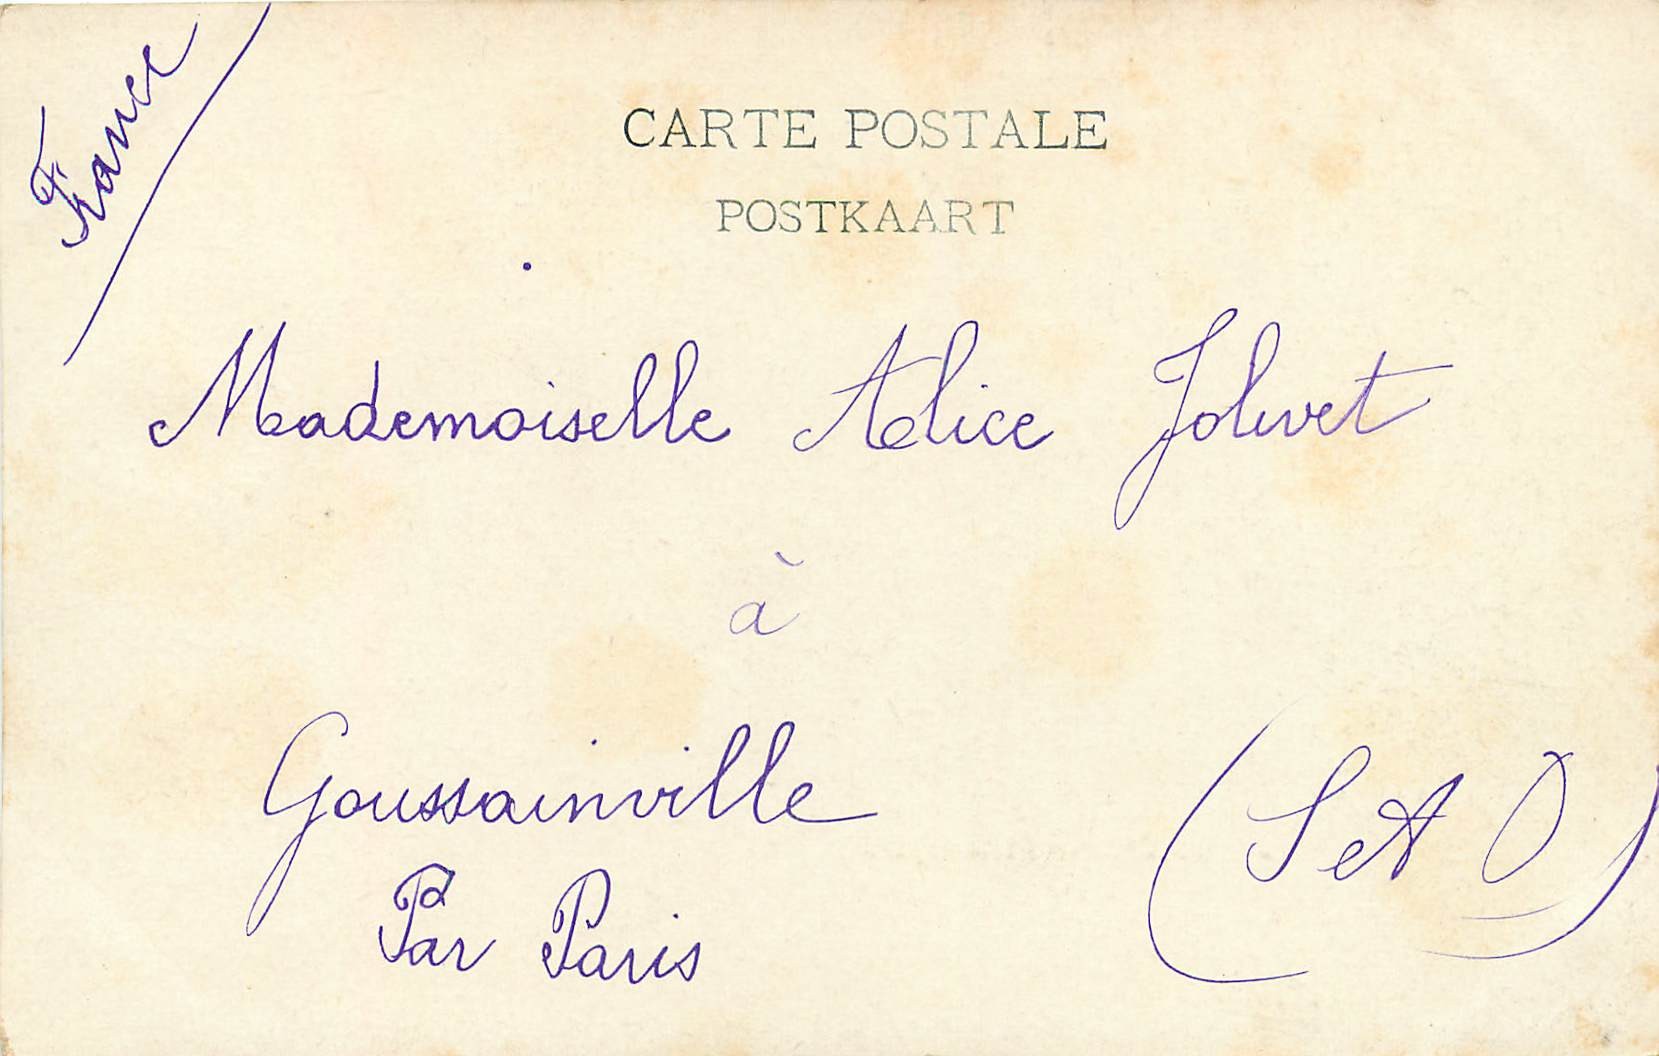 France
CARTE POSTALE
POSTKAART
Mademoiselle Alice Jolivet
à
Goussainville
(S et O)
Par Paris